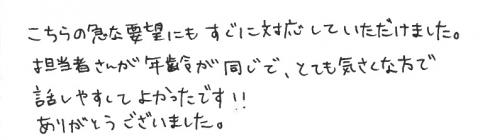 こちらの急な要望にもすぐに対応していただけました。
担当者さんが年齢が同じで、とても気さくな方で
話しやすしてよかったです!!
ありがとうございました。